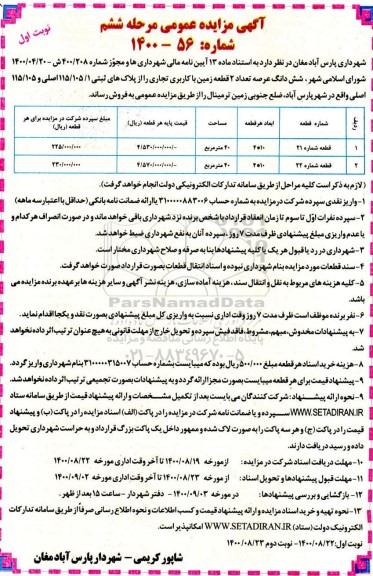 نوبت اول
آگهی مزایده عمومی مرحله ششم
شماره: ۵۶ - ۱۴۰۰
شهرداری پارس آباد مغان در نظر دارد به استناد ماده ۱۳ آیین نامه مالی شهرداری ها و مجوز شماره ۴۰۰/۲۰۸ ش - ۱۴۰۰/۰۴/۲۰
شورای اسلامی شهر، شش دانگ عرصه تعداد ۲ قطعه زمین با کاربری تجاری را از پلاک های ثبتی ۱ /۱۱۵/۱۰۵ اصلی و ۱۱۵/۱۰۵
اصلی واقع در شهر پارس آباد، ضلع جنوبی زمین ترمینال را از طریق مزایده عمومی به فروش رساند.
ردیف شماره قطعه ابعاد هر قطعه مساحت قیمت پایه هر قطعه (ریال) مبلغ سپرده شرکت در مزایده برای هر قطعه (ریال)
۱ قطعه شماره ۲۱ ۴*۱۰ ۴۰ مترمربع ۴/۵۳۰/۰۰۰/۰۰۰/- ۲۲۵/۰۰۰/۰۰۰
۲ قطعه شماره ۲۲ ۴*۱۰ ۴۰ مترمربع ۴/۵۷۰/۰۰۰/۰۰۰/- ۲۳۰/۰۰۰/۰۰۰
(لازم به ذکر است کلیه مراحل از طریق سامانه تدارکات الکترونیکی دولت انجام خواهد گرفت).
۱- واریز نقدی سپرده شرکت در مزایده به شماره حساب ۳۱۰۰۰۰۰۸۸۳۰۰۶ یا ارائه ضمانت نامه بانکی (حداقل با اعتبار سه ماهه)
۲- سپرده نفرات اول تا سوم تا زمان انعقاد قرارداد با شخص برنده نزد شهرداری باقی خواهد ماند و در صورت انصراف هر کدام و
یا عدم واریزی مبلغ پیشنهادی ظرف مدت ۷ روز، سپرده آنان به نفع شهرداری ضبط خواهد شد.
۳- شهرداری در رد یا قبول هر یک یا کلیه پیشنهادها بنا به صرفه و صلاح شهرداری مختار است.
۴- سند قطعات مورد مزایده بنام شهرداری نبوده و اسناد انتقال قطعات بصورت قرارداد صورت خواهد گرفت.
۵- کلیه هزینه های مربوط به نقل و انتقال سند، هزینه آماده سازی، هزینه نشر آگهی و سایر هزینه ها بر عهده برنده مزایده می
باشد.
۶- نفر برنده موظف است ظرف مدت ۷ روز وقت اداری نسبت به واریزی کل مبلغ پیشنهادی بصورت نقد و یکجا اقدام نماید.
۷- به پیشنهادات مخدوش، مبهم، مشروط، فاقد فیش سپرده و تحویل خارج از مهلت قانونی به هیچ عنوان ترتیب اثر داده نخواهد
شد.
۸- هزینه خرید اسناد هر قطعه مبلغ ۵۰۰/۰۰۰ ریال بوده که میبایست بشماره حساب ۳۱۰۰۰۰۰۳۱۵۰۰۷ بنام شهرداری واریز گردد.
- پیشنهاد قیمت برای هر قطعه میبایست بصورت مجزا ارائه گردد و به پیشنهادات بصورت تجمیعی ترتیب اثر داده نخواهد شد.
۹- نحوه ارائه پیشنهاد: شرکت کنندگان می بایست بعد از تکمیل مشخصات و ارائه پیشنهاد قیمت از طریق سامانه ستاد
WWW.SETADIRAN.IR سپرده و یا ضمانت نامه شرکت در مزایده را در پاکت (الف) اسناد مزایده را در پاکت (ب) و پیشنهاد
قیمت را در پاکت (ج) و هر سه پاکت را به صورت لاک شده و ممهور داخل یک پاکت بزرگ قرارداد و به حراست شهرداری تحویل
داده و رسید دریافت دارند.
۱۰- مهلت دریافت اسناد شرکت در مزایده: از مورخه ۱۴۰۰/۰۸/۱۹ تا آخر وقت اداری مورخه ۱۴۰۰/۰۸/۲۲
۱۱- مهلت قبول پیشنهادها و تحویل اسناد: از مورخه ۱۴۰۰/۰۸/۲۳ تا آخر وقت اداری مورخه ۱۴۰۰/۰۹/۰۲
۱۲- بازگشایی و بررسی پیشنهادها: در مورخه ۱۴۰۰/۰۹/۰۳ - دفتر شهردار - ساعت ۱۵ بعد از ظهر.
۱۳- نحوه تهیه و خرید اسناد مزایده و ارائه پیشنهاد قیمت و کسب اطلاعات و نحوه اطلاع رسانی صرفاً از طریق سامانه تدارکات
الکترونیک دولت (ستاد) WWW.SETADIRAN.IR امکانپذیر است.
نوبت اول: ۱۴۰۰/۰۸/۲۲ - نوبت دوم ۱۴۰۰/۰۸/۲۳
شاپور کریمی - شهردار پارس آباد مغان
ParsNamadData
پایگاه اطلاع رسانی مناقصه و مزایده
۰۲۱-۸۸۳۴۹۶۷۰-۵